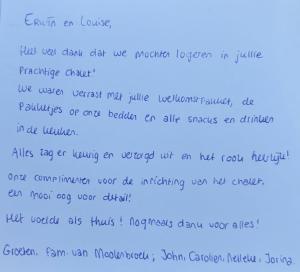 Erwin en Louise,
Heel veel dank dat we mochten logeren in jullie
prachtige chalet!
We waren verrast met jullie welkomstpakket, de
pakketjes op onze bedden en alle snacks en drinken
in de keuken.
Alles zag er keurig en verzorgd uit en het rook heerlijk!
onze complimenten voor de inrichting van het chalet,
een mooi oog voor detail!
Het voelde als thuis! nogmaals dank voor alles!
Groeten, Fam. van Moolenbroek; John, Carolien, Nelleke, Jorina.